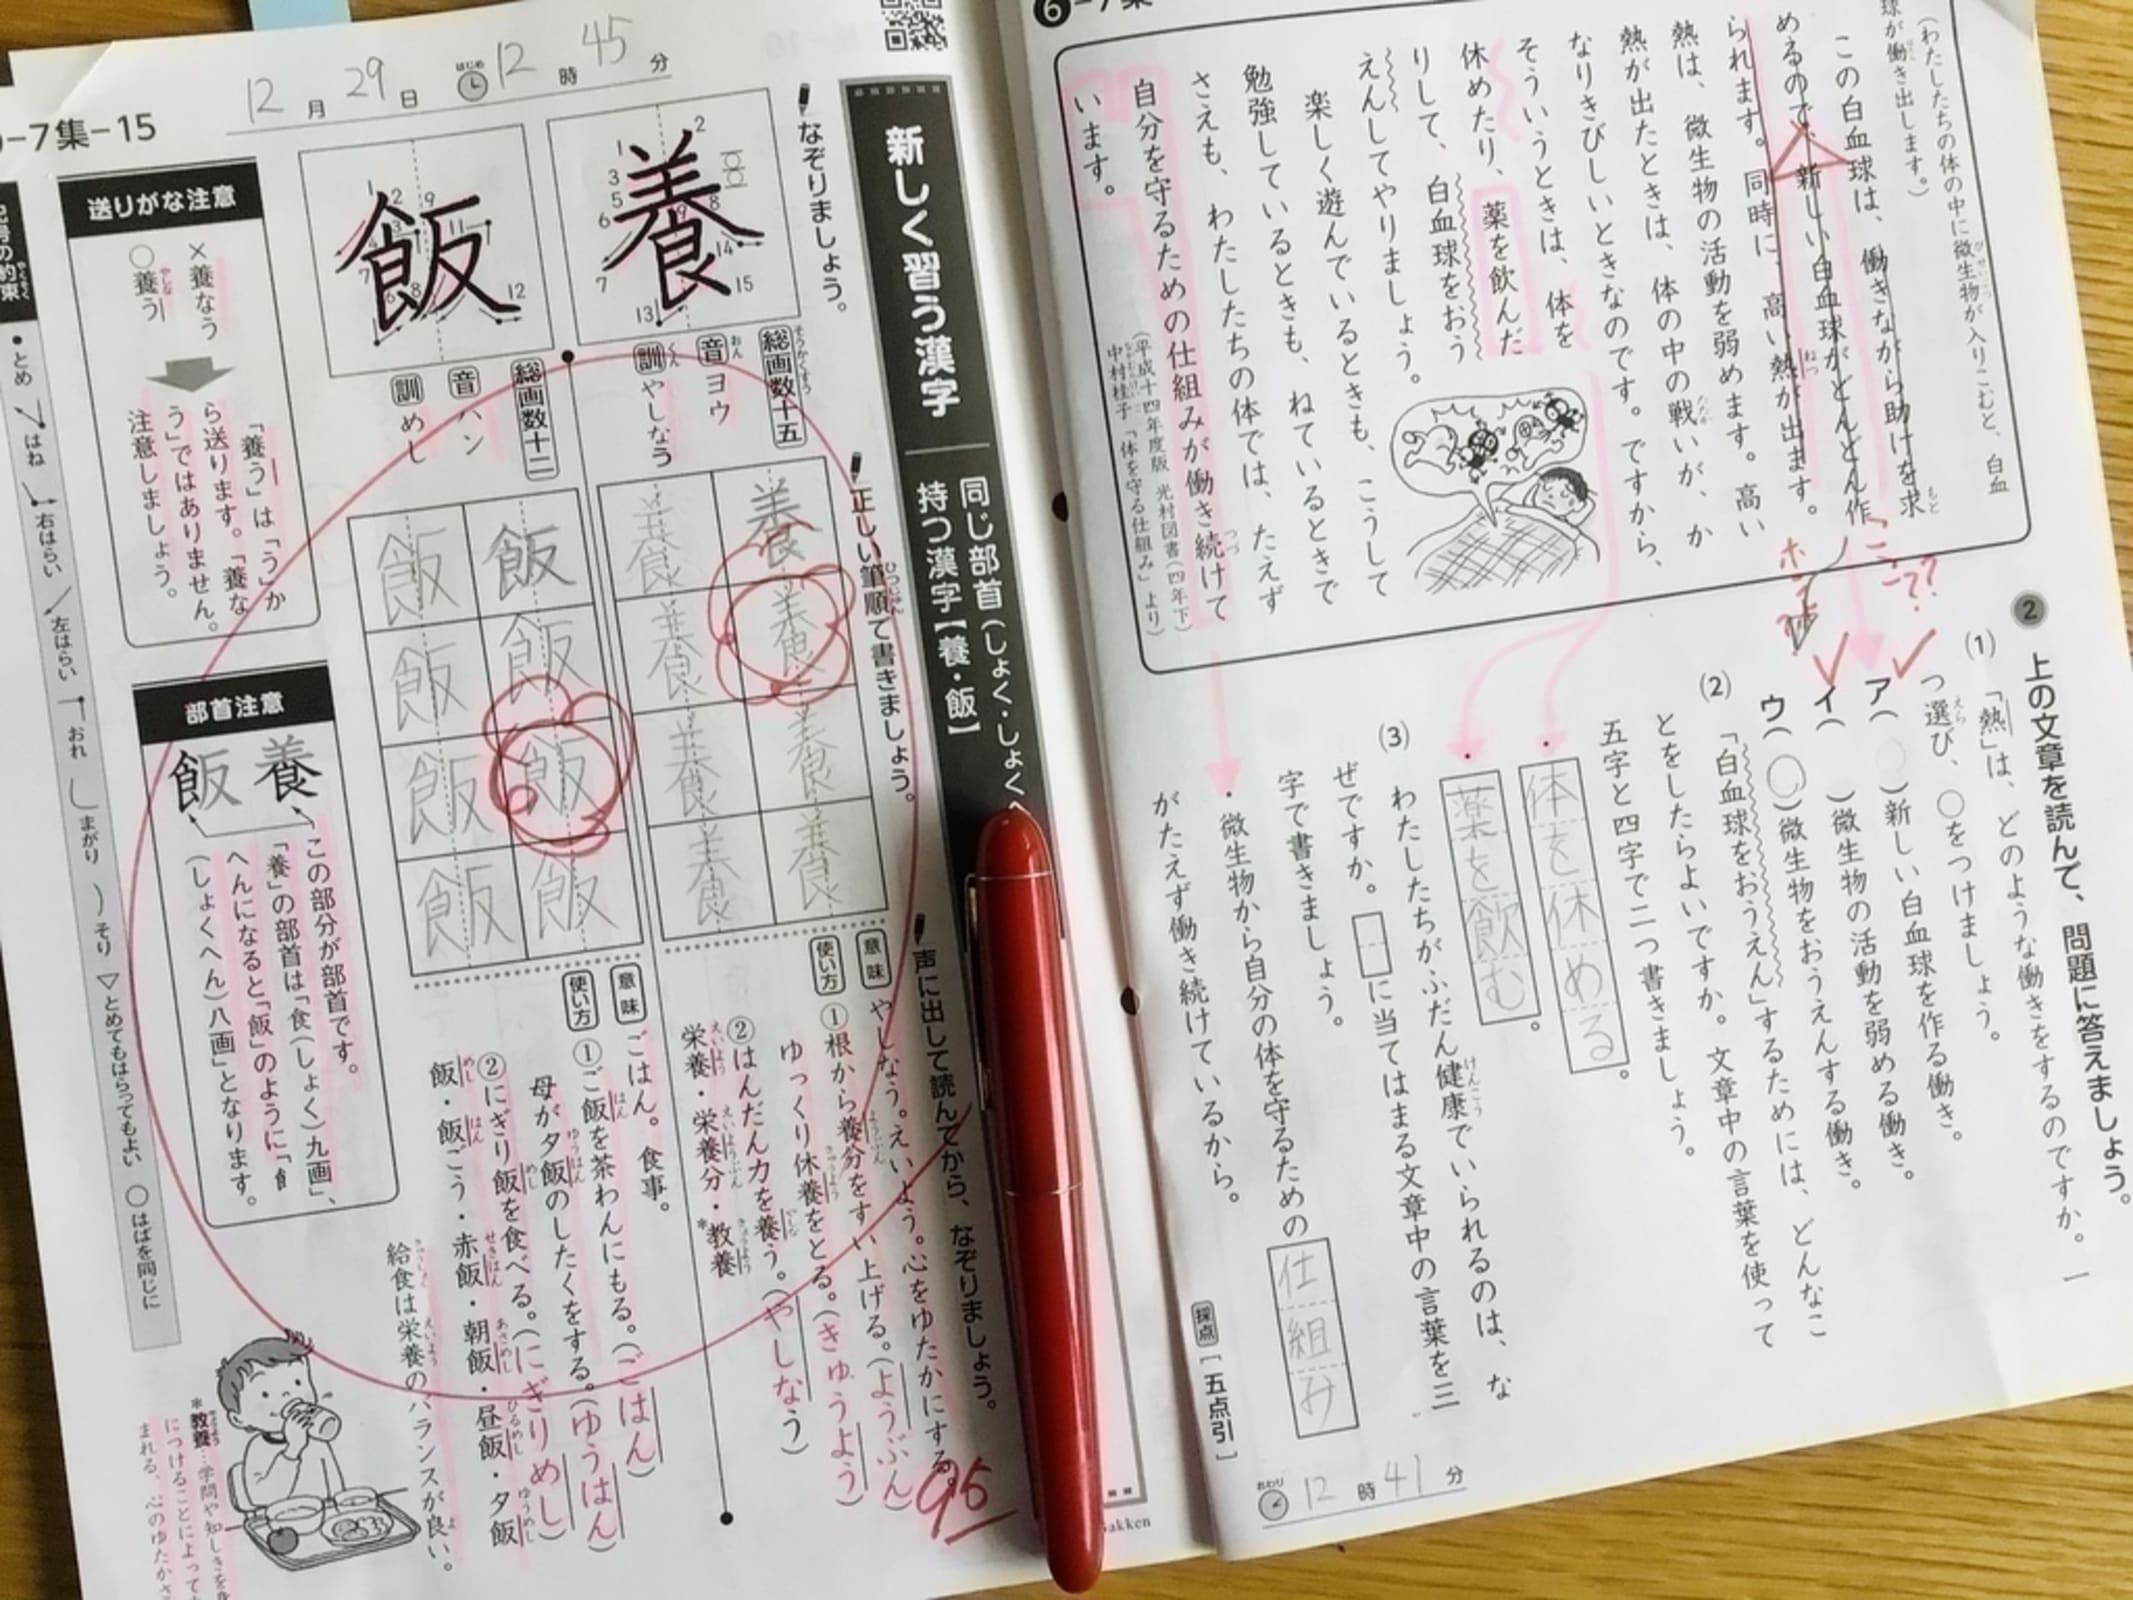 6-7集
(わたしたちの体の中に微生物が入りこむと、白血
球が働き出します。)
この白血球は、働きながら助けを求
めるので、新しい白血球がどんどん作
られます。同時に、高い熱が出ます。
熱は、微生物の活動を弱めます。高い
熱が出たときは、体の中の戦いが、か
なりきびしいときなのです。ですから、
そういうときは、体を
休めたり、薬を飲んだ
りして、白血球をおう
えんしてやりましょう。
楽しく遊んでいるときも、こうして
勉強しているときも、ねているときで
さえも、わたしたちの体では、たえず
自分を守るための仕組みが働き続けて
います。
(平成十四年度版 光村図書(四年下)
中村桂子「体を守る仕組み」より)
2 上の文章を読んで、問題に答えましょう。
(1) 「熱」は、どのような働きをするのですか。一
つ選び、○をつけましょう。
ア( )新しい白血球を作る働き。
イ( )微生物の活動を弱める働き。
ウ(○)微生物をおうえんする働き。
(2) 「白血球をおうえん」するためには、どんなこ
とをしたらよいですか。文章中の言葉を使って
五字と四字で二つ書きましょう。
・体を休める。
・薬を飲む。
(3) わたしたちがふだん健康でいられるのは、な
ぜですか。□に当てはまる文章中の言葉を三
字で書きましょう。
・微生物から自分の体を守るための仕組み
がたえず働き続けているから。
採点[五点引]
おわり 12時41分
-7集-15
12月29日 はじめ 12時45分
新しく習う漢字
同じ部首(しょく・しょくへ
持つ漢字【養・飯】
なぞりましょう。
養
総画数十五
音 ヨウ
訓 やしなう
飯
総画数十二
音 ハン
訓 めし
正しい筆順で書きましょう。
養 養 養 養
養 養 養 養
飯 飯 飯 飯
飯 飯 飯 飯
声に出して読んでから、なぞりましょう。
意味 やしなう。えいよう。心をゆたかにする。
使い方 ①根から養分をすい上げる。(ようぶん)
ゆっくり休養をとる。(きゅうよう)
②はんだん力を養う。(やしなう)
栄養・栄養分・*教養
意味 ごはん。食事。
使い方 ①ご飯を茶わんにもる。(ごはん)
母が夕飯のしたくをする。(ゆうはん)
②にぎり飯を食べる。(にぎりめし)
飯・飯ごう・赤飯・朝飯・昼飯・夕飯
給食は栄養のバランスが良い。
*教養…学問や知しきを身
につけることによって
まれる、心のゆたかさ
95
送りがな注意
×養なう
○養う
「養う」は「う」か
ら送ります。「養な
う」ではありません。
注意しましょう。
部首注意
養
飯
この部分が部首です。
「養」の部首は「食(しょく)九画」、
へんになると「飯」のように「飠
(しょくへん)八画」となります。
の約束
●とめ
はね
右はらい
左はらい
おれ
まがり
そり
▽とめてもはらってもよい
○はばを同じに
Gakken